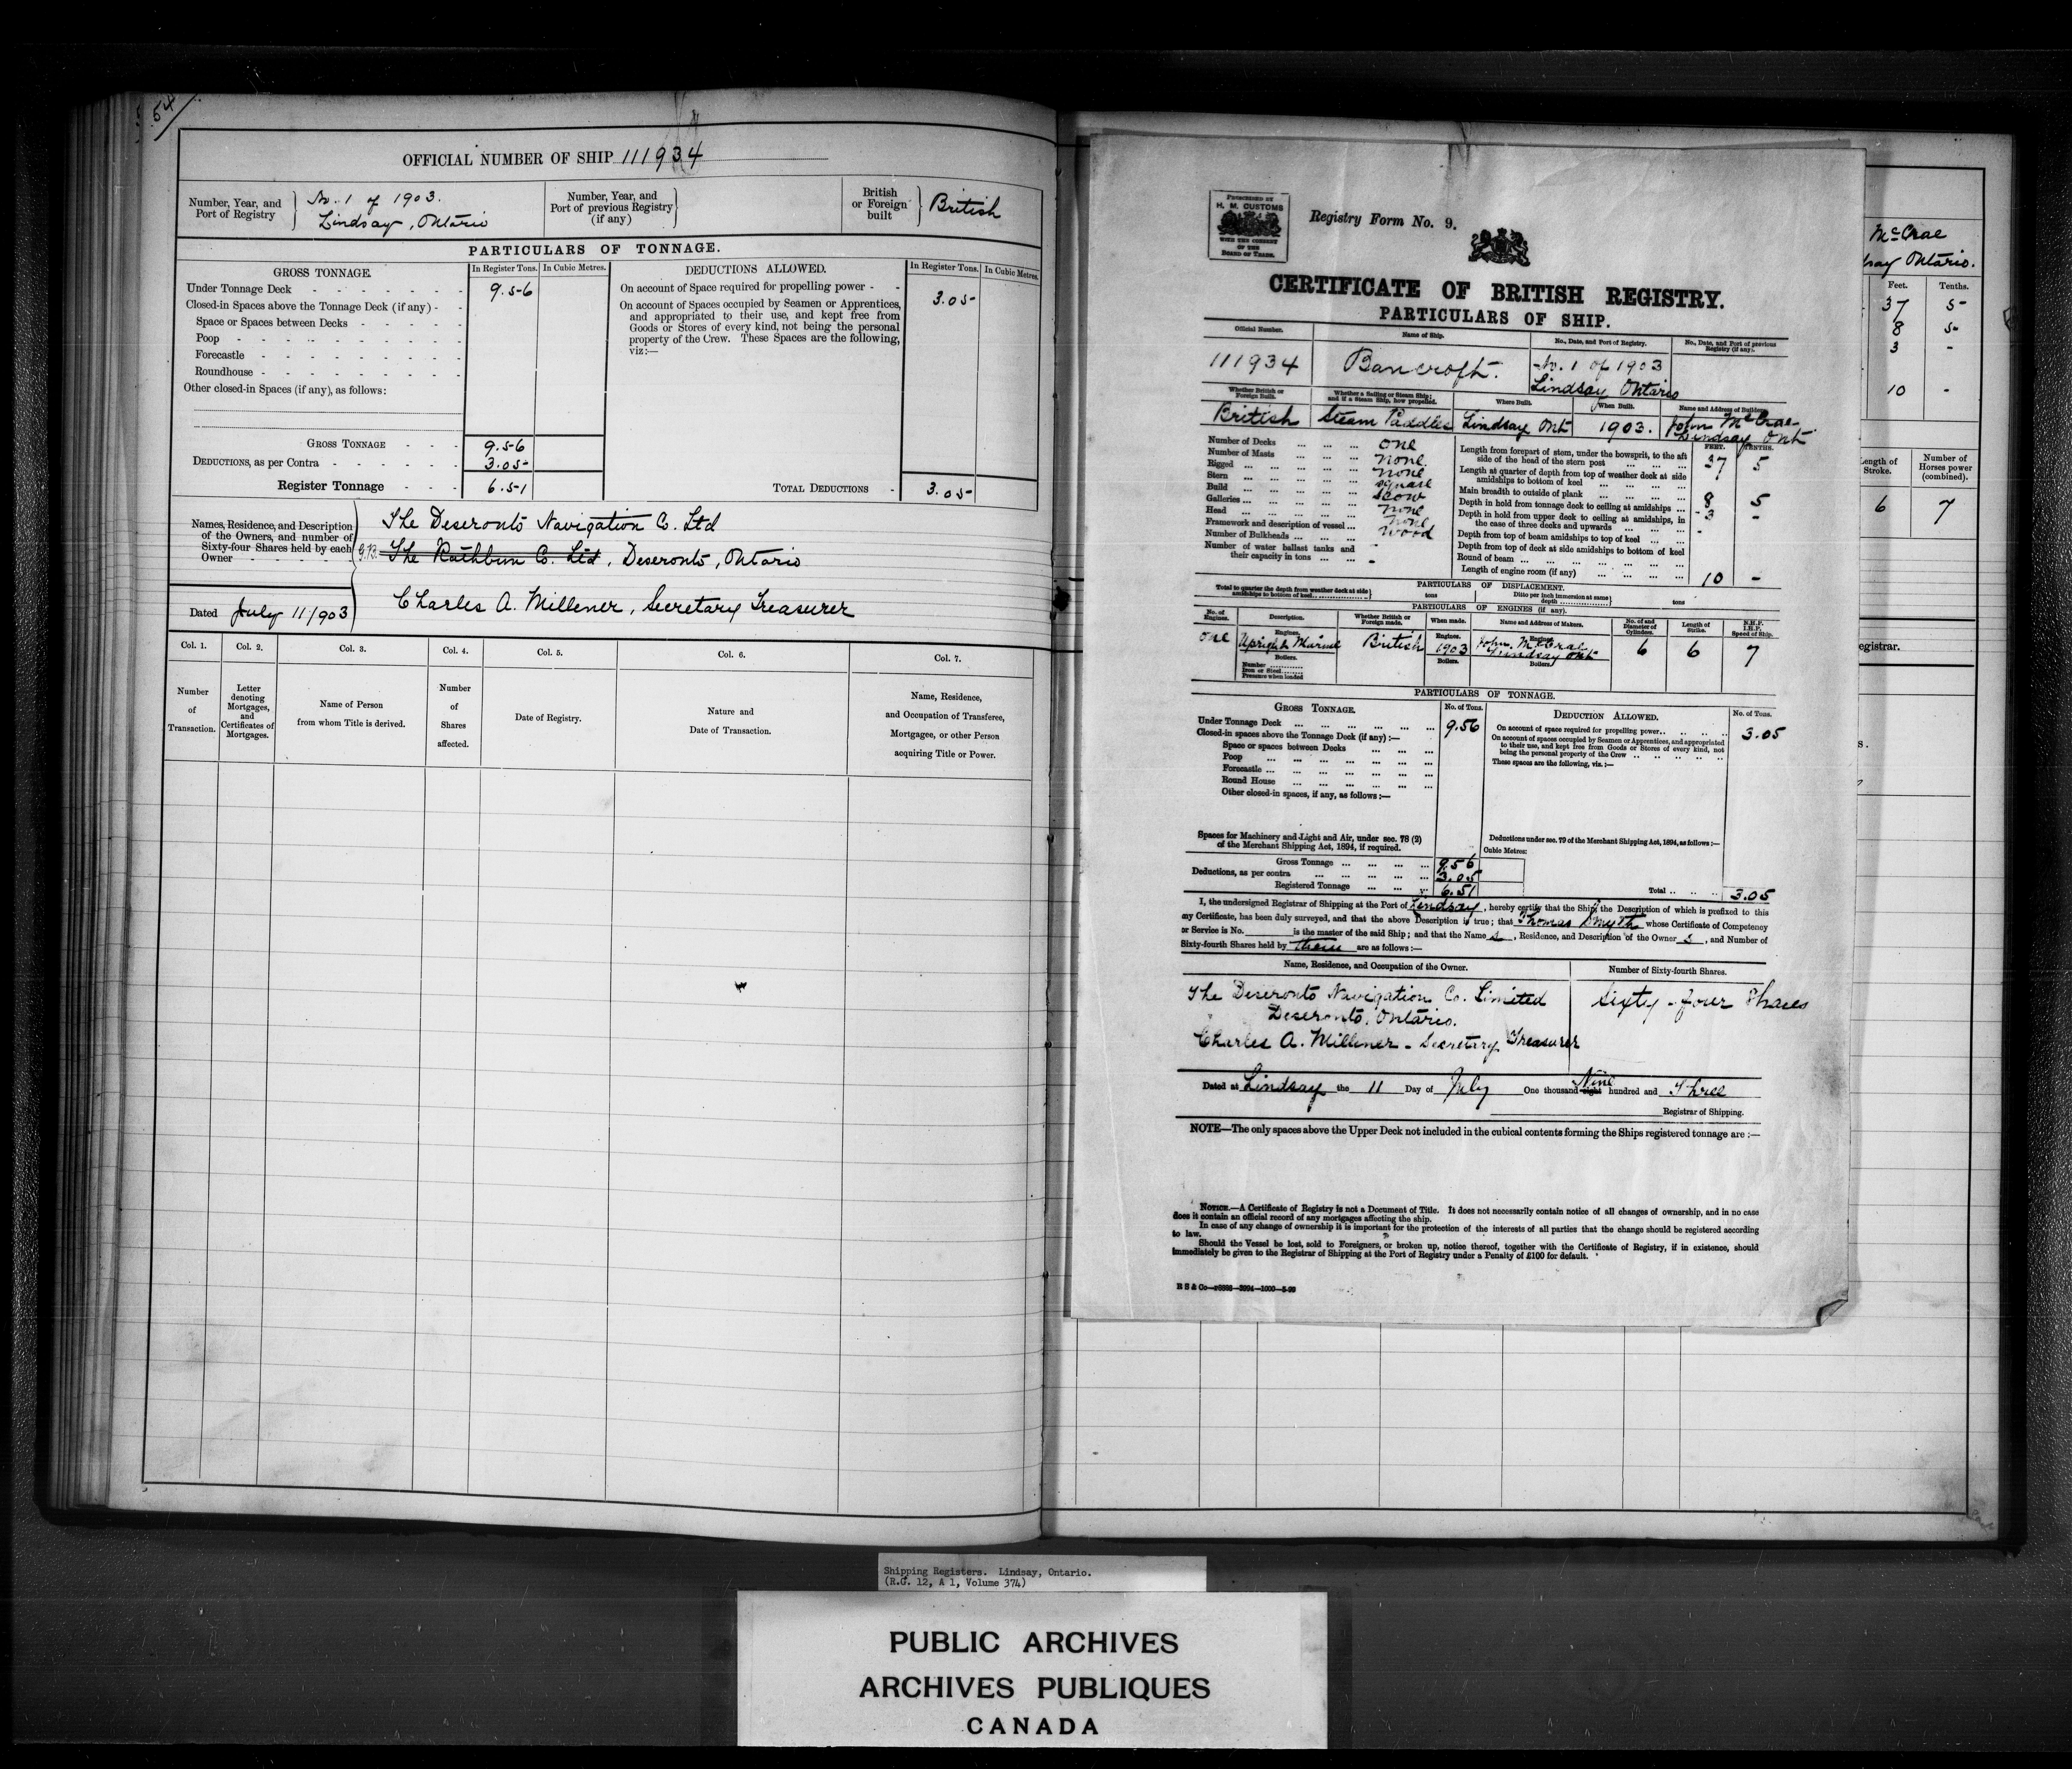 54
OFFICIAL NUMBER OF SHIP 111934
Number, Year, and Port of Registry
No. 1 of 1903.
Lindsay, Ontario
Number, Year, and Port of previous Registry (if any)
British or Foreign built
British
PARTICULARS OF TONNAGE.
GROSS TONNAGE. In Register Tons. In Cubic Metres. DEDUCTIONS ALLOWED. In Register Tons. In Cubic Metres.
Under Tonnage Deck 9.56
Closed-in Spaces above the Tonnage Deck (if any)
Space or Spaces between Decks
Poop
Forecastle
Roundhouse
Other closed-in Spaces (if any), as follows:
GROSS TONNAGE 9.56
DEDUCTIONS, as per Contra 3.05
Register Tonnage 6.51
On account of Space required for propelling power 3.05
On account of Spaces occupied by Seamen or Apprentices,
and appropriated to their use, and kept free from
Goods or Stores of every kind, not being the personal
property of the Crew. These Spaces are the following,
viz:—
TOTAL DEDUCTIONS 3.05
Names, Residence, and Description
of the Owners, and number of
Sixty-four Shares held by each
Owner
The Deseronto Navigation Co. Ltd
The Rathbun Co. Ltd, Deseronto, Ontario
Charles A. Millener, Secretary Treasurer
Dated July 11/1903
Col. 1. Col. 2. Col. 3. Col. 4. Col. 5. Col. 6. Col. 7.
Number of Transaction.
Letter denoting Mortgages, and Certificates of Mortgages.
Name of Person from whom Title is derived.
Number of Shares affected.
Date of Registry.
Nature and Date of Transaction.
Name, Residence, and Occupation of Transferee, Mortgagee, or other Person acquiring Title or Power.
PRESCRIBED BY
H. M. CUSTOMS
WITH THE CONSENT
OF THE
BOARD OF TRADE.
Registry Form No. 9.
CERTIFICATE OF BRITISH REGISTRY.
PARTICULARS OF SHIP.
Official Number. Name of Ship. No., Date, and Port of Registry. No., Date, and Port of previous Registry (if any).
111934 Bancroft. No. 1 of 1903
Lindsay Ontario
Whether British or Foreign Built. Whether a Sailing or Steam Ship; and if a Steam Ship, how propelled. Where Built. When Built. Name and Address of Builders.
British Steam Paddles Lindsay Ont 1903. John McCrae
Lindsay Ont
Number of Decks one
Number of Masts none
Rigged none
Stern square
Build scow
Galleries none
Head none
Framework and description of vessel wood
Number of Bulkheads -
Number of water ballast tanks and
their capacity in tons -
FEET. TENTHS.
Length from forepart of stem, under the bowsprit, to the aft
side of the head of the stern post 37 5
Length at quarter of depth from top of weather deck at side
amidships to bottom of keel
Main breadth to outside of plank 8 5
Depth in hold from tonnage deck to ceiling at amidships 3 -
Depth in hold from upper deck to ceiling at amidships, in
the case of three decks and upwards
Depth from top of beam amidships to top of keel
Depth from top of deck at side amidships to bottom of keel
Round of beam
Length of engine room (if any) 10 -
PARTICULARS OF DISPLACEMENT.
Total to quarter the depth from weather deck at side amidships to bottom of keel tons Ditto per inch immersion at same depth tons
PARTICULARS OF ENGINES (if any).
No. of Engines. Description. Whether British or Foreign made. When made. Name and Address of Makers. No. of and Diameter of Cylinders. Length of Stroke. N.H.P. I.H.P. Speed of Ship.
one Engines. Upright Marine British Engines. 1903 John McCrae Lindsay Ont 6 6 7
Boilers.
Number
Iron or Steel
Pressure when loaded
Boilers.
Boilers.
PARTICULARS OF TONNAGE.
GROSS TONNAGE. No. of Tons. DEDUCTION ALLOWED. No. of Tons.
Under Tonnage Deck 9.56
Closed-in spaces above the Tonnage Deck (if any) :—
Space or spaces between Decks
Poop
Forecastle
Round House
Other closed-in spaces, if any, as follows :—
On account of space required for propelling power 3.05
On account of spaces occupied by Seamen or Apprentices, and appropriated
to their use, and kept free from Goods or Stores of every kind, not
being the personal property of the Crew
These spaces are the following, viz. :—
Spaces for Machinery and Light and Air, under sec. 78 (2)
of the Merchant Shipping Act, 1894, if required.
Deductions under sec. 79 of the Merchant Shipping Act, 1894, as follows :—
Cubic Metres:
Gross Tonnage 9.56
Deductions, as per contra 3.05
Registered Tonnage 6.51
Total 3.05
I, the undersigned Registrar of Shipping at the Port of Lindsay, hereby certify that the Ship, the Description of which is prefixed to this
my Certificate, has been duly surveyed, and that the above Description is true; that Thomas Smyth whose Certificate of Competency
or Service is No. is the master of the said Ship; and that the Name s, Residence, and Description of the Owner s, and Number of
Sixty-fourth Shares held by them are as follows :—
Name, Residence, and Occupation of the Owner. Number of Sixty-fourth Shares.
The Deseronto Navigation Co. Limited Sixty-four Shares
Deseronto, Ontario.
Charles A. Millener - Secretary Treasurer
Dated at Lindsay the 11 Day of July One thousand eight Nine hundred and Three
Registrar of Shipping.
NOTE—The only spaces above the Upper Deck not included in the cubical contents forming the Ships registered tonnage are :—
NOTICE.—A Certificate of Registry is not a Document of Title. It does not necessarily contain notice of all changes of ownership, and in no case
does it contain an official record of any mortgages affecting the ship.
In case of any change of ownership it is important for the protection of the interests of all parties that the change should be registered according
to law.
Should the Vessel be lost, sold to Foreigners, or broken up, notice thereof, together with the Certificate of Registry, if in existence, should
immediately be given to the Registrar of Shipping at the Port of Registry under a Penalty of £100 for default.
McCrae
dsay Ontario.
Feet. Tenths.
37 5
8 5
3 -
10 -
Length of Stroke. Number of Horses power (combined).
6 7
egistrar.
Shipping Registers. Lindsay, Ontario.
(R.G. 12, A 1, Volume 374)
PUBLIC ARCHIVES
ARCHIVES PUBLIQUES
CANADA